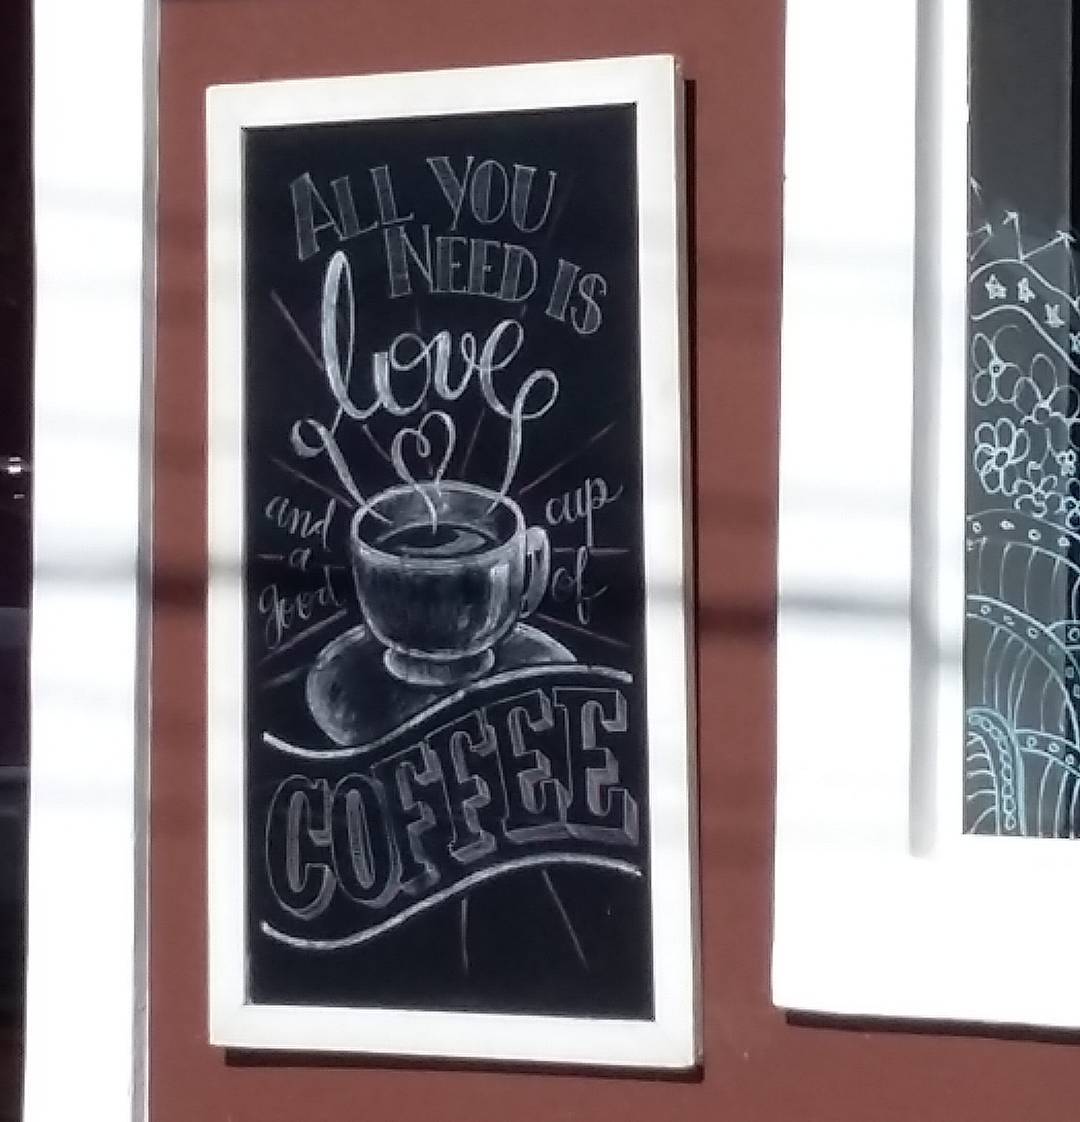 ALL YOU
NEED IS
love
and
a
good
cup
of
COFFEE